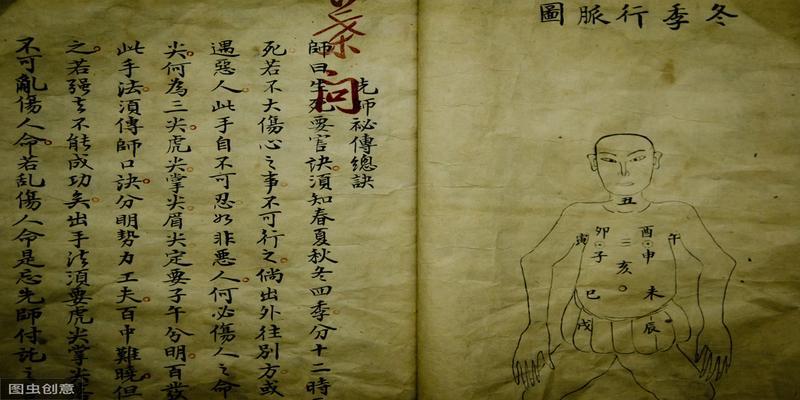 冬季行脈圖
丑
寅 卯 酉 午
子 申
亥
巳 未
戌 辰
葉问
先師祕傳總訣
師曰生死要官訣須知春夏秋冬四季分十二時
死若不大傷心之事不可行之倘出外往別方或
遇惡人此手自不可忍如非惡人何必傷人之命
尖何為三尖虎尖掌尖眉尖定要子午分明百發
此手法須傳師口訣分明勢力工夫百中難曉但
之若强言不能成功矣出手法須要虎尖掌尖
不可亂傷人命若乱傷人命是忘先師付託之
图虫创意